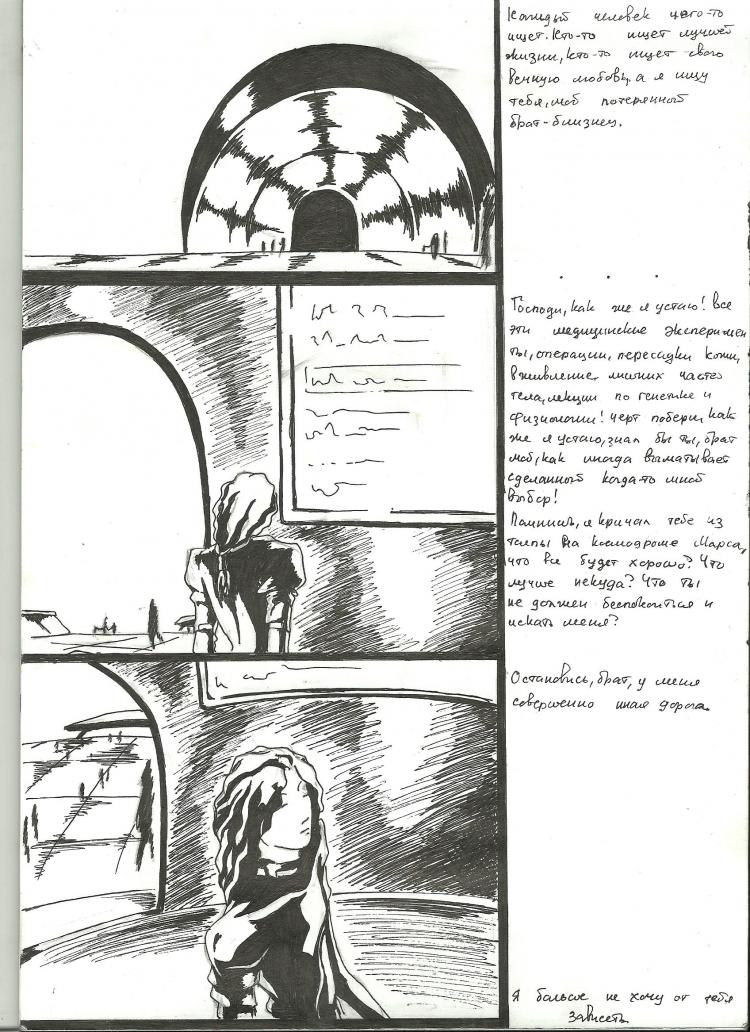 Каждый человек чего-то
ищет. Кто-то ищет лучшей
жизни, кто-то ищет свою
вечную любовь, а я ищу
тебя, мой потерянный
брат-близнец.
. . .
Господи, как же я устаю! Все
эти медицинские эксперимен
ты, операции, пересадки кожи,
вживление лишних частей
тела, лекции по генетике и
физиологии! Черт побери, как
же я устаю, знал бы ты, брат
мой, как иногда выматывает
сделанный когда-то мной
выбор!
Помнишь, я кричал тебе из
толпы на космодроме Марса,
что все будет хорошо? Что
лучше некуда? Что ты
не должен беспокоиться и
искать меня?
Остановись, брат, у меня
совершенно иная дорога.
Я больше не хочу от тебя
зависеть.